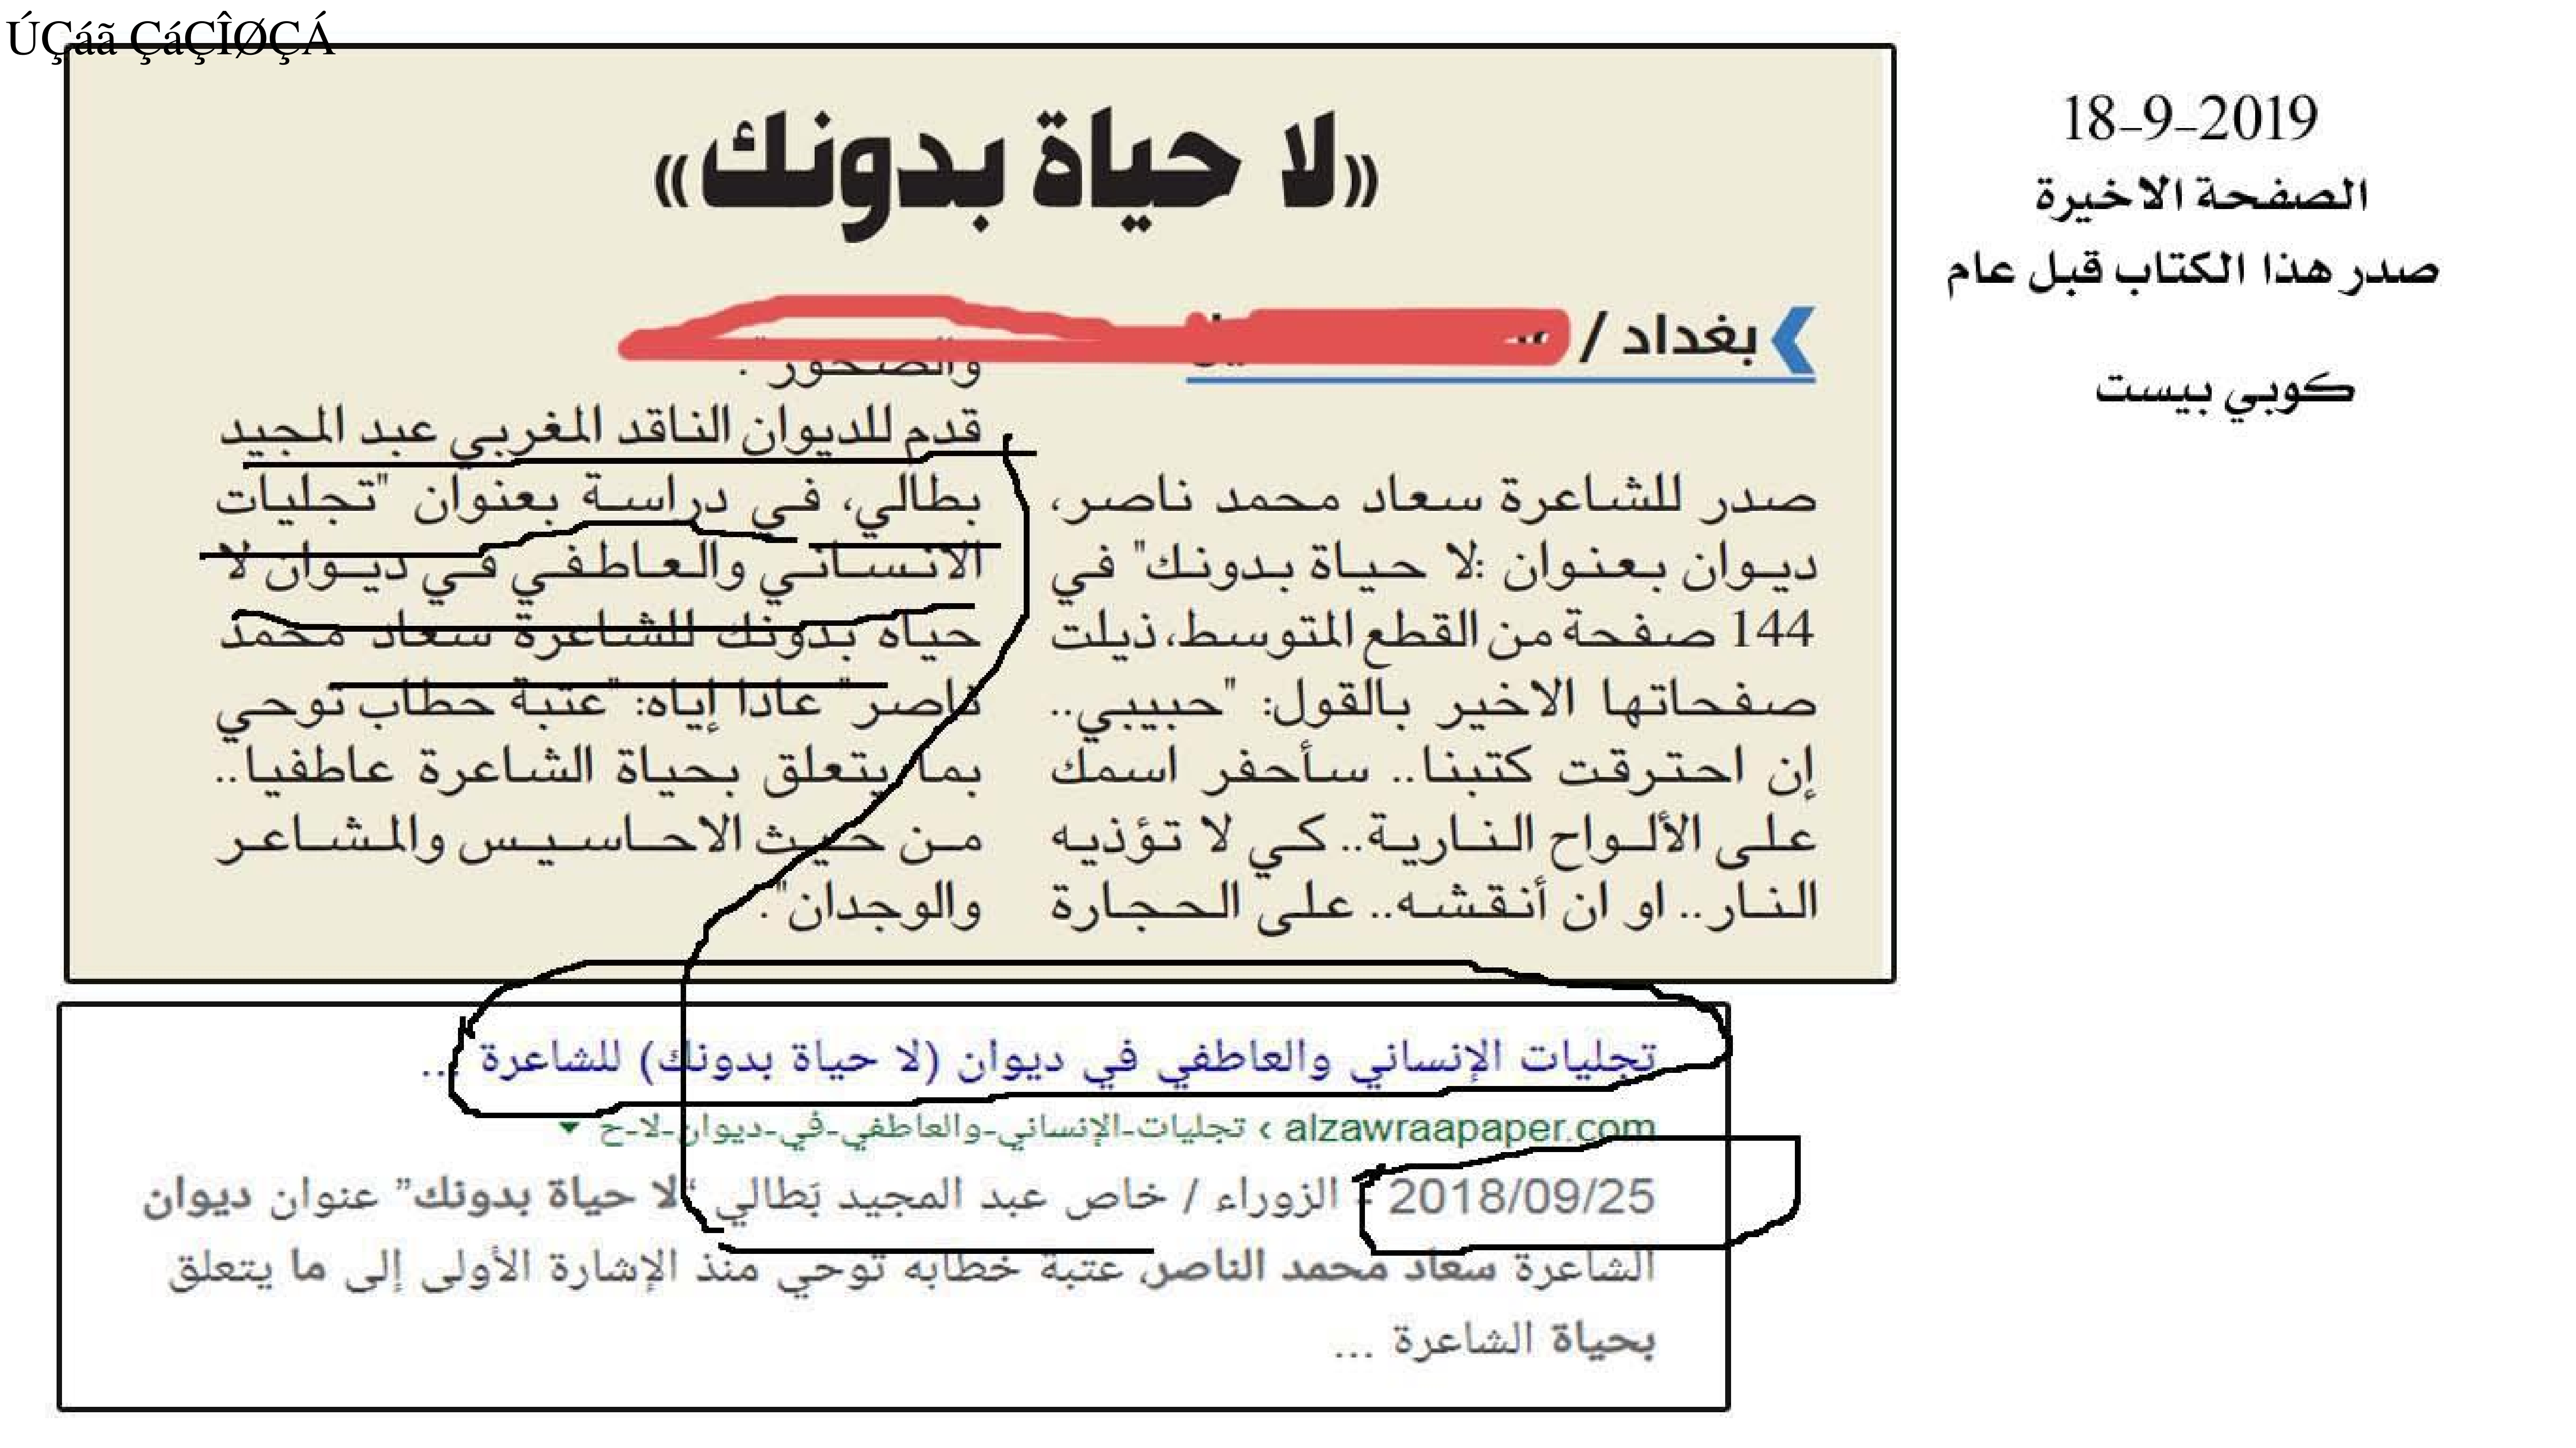 ÚÇáã ÇáÇÎØÇÁ
18-9-2019
الصفحة الاخيرة
صدر هذا الكتاب قبل عام
كوبي بيست
«لا حياة بدونك»
بغداد /
صدر للشاعرة سعاد محمد ناصر،
ديوان بعنوان :لا حياة بدونك" في
144 صفحة من القطع المتوسط، ذيلت
صفحاتها الاخير بالقول: "حبيبي..
إن احترقت كتبنا.. سأحفر اسمك
على الألواح النارية.. كي لا تؤذيه
النار.. او ان أنقشه.. على الحجارة
والصخور".
قدم للديوان الناقد المغربي عبد المجيد
بطالي، في دراسة بعنوان "تجليات
الانساني والعاطفي في ديوان لا
حياة بدونك للشاعرة سعاد محمد
ناصر" عادا إياه: "عتبة خطاب توحي
بما يتعلق بحياة الشاعرة عاطفيا..
من حيث الاحاسيس والمشاعر
والوجدان".
تجليات الإنساني والعاطفي في ديوان (لا حياة بدونك) للشاعرة ...
alzawraapaper.com › تجليات-الإنساني-والعاطفي-في-ديوان-لا-ح
2018/09/25 - الزوراء / خاص عبد المجيد بَطالي “لا حياة بدونك” عنوان ديوان
الشاعرة سعاد محمد الناصر، عتبة خطابه توحي منذ الإشارة الأولى إلى ما يتعلق
بحياة الشاعرة ...